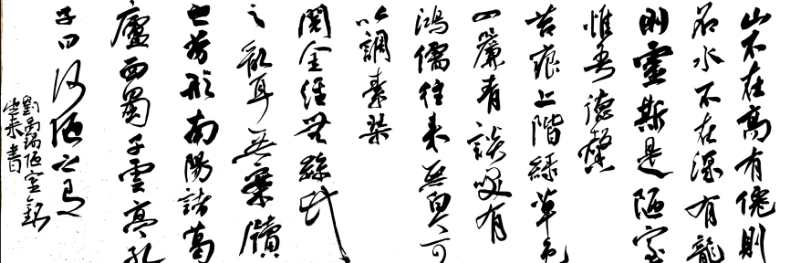 山不在高有僊則
名水不在深有龍
則靈斯是陋室
惟吾德馨
苔痕上階綠草色
入簾青談笑有
鴻儒往來無白丁可
以調素琴
閱金經無絲竹
之亂耳無案牘
之勞形南陽諸葛
廬西蜀子雲亭孔
子曰何陋之有
劉禹錫陋室銘
來書